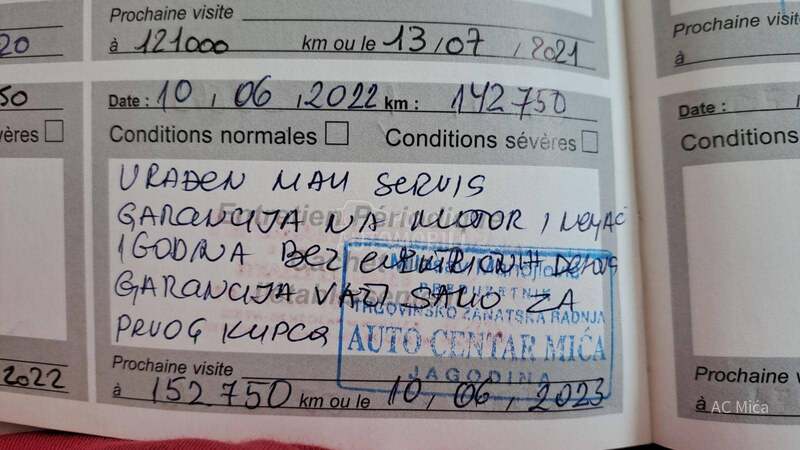 Prochaine visite
Prochaine visite
20
à 121000 km ou le 13/07/2021
à
50
Date : 10, 06, 2022 km : 142750
Date :
vères
Conditions normales
Conditions sévères
Conditions
URAĐEN MALI SERVIS
GARANCIJA NA MOTOR I MENJAČ
1 GODINA BEZ
GARANCIJA VAŽI SAMO ZA
PRVOG KUPCA
Entretien Périodique
PREDUZETNIK
TRGOVINSKO ZANATSKA RADNJA
AUTO CENTAR MIĆA
JAGODINA
Prochaine visite
Prochaine
2022
à 152750 km ou le 10, 06, 2023
à
AC Mića